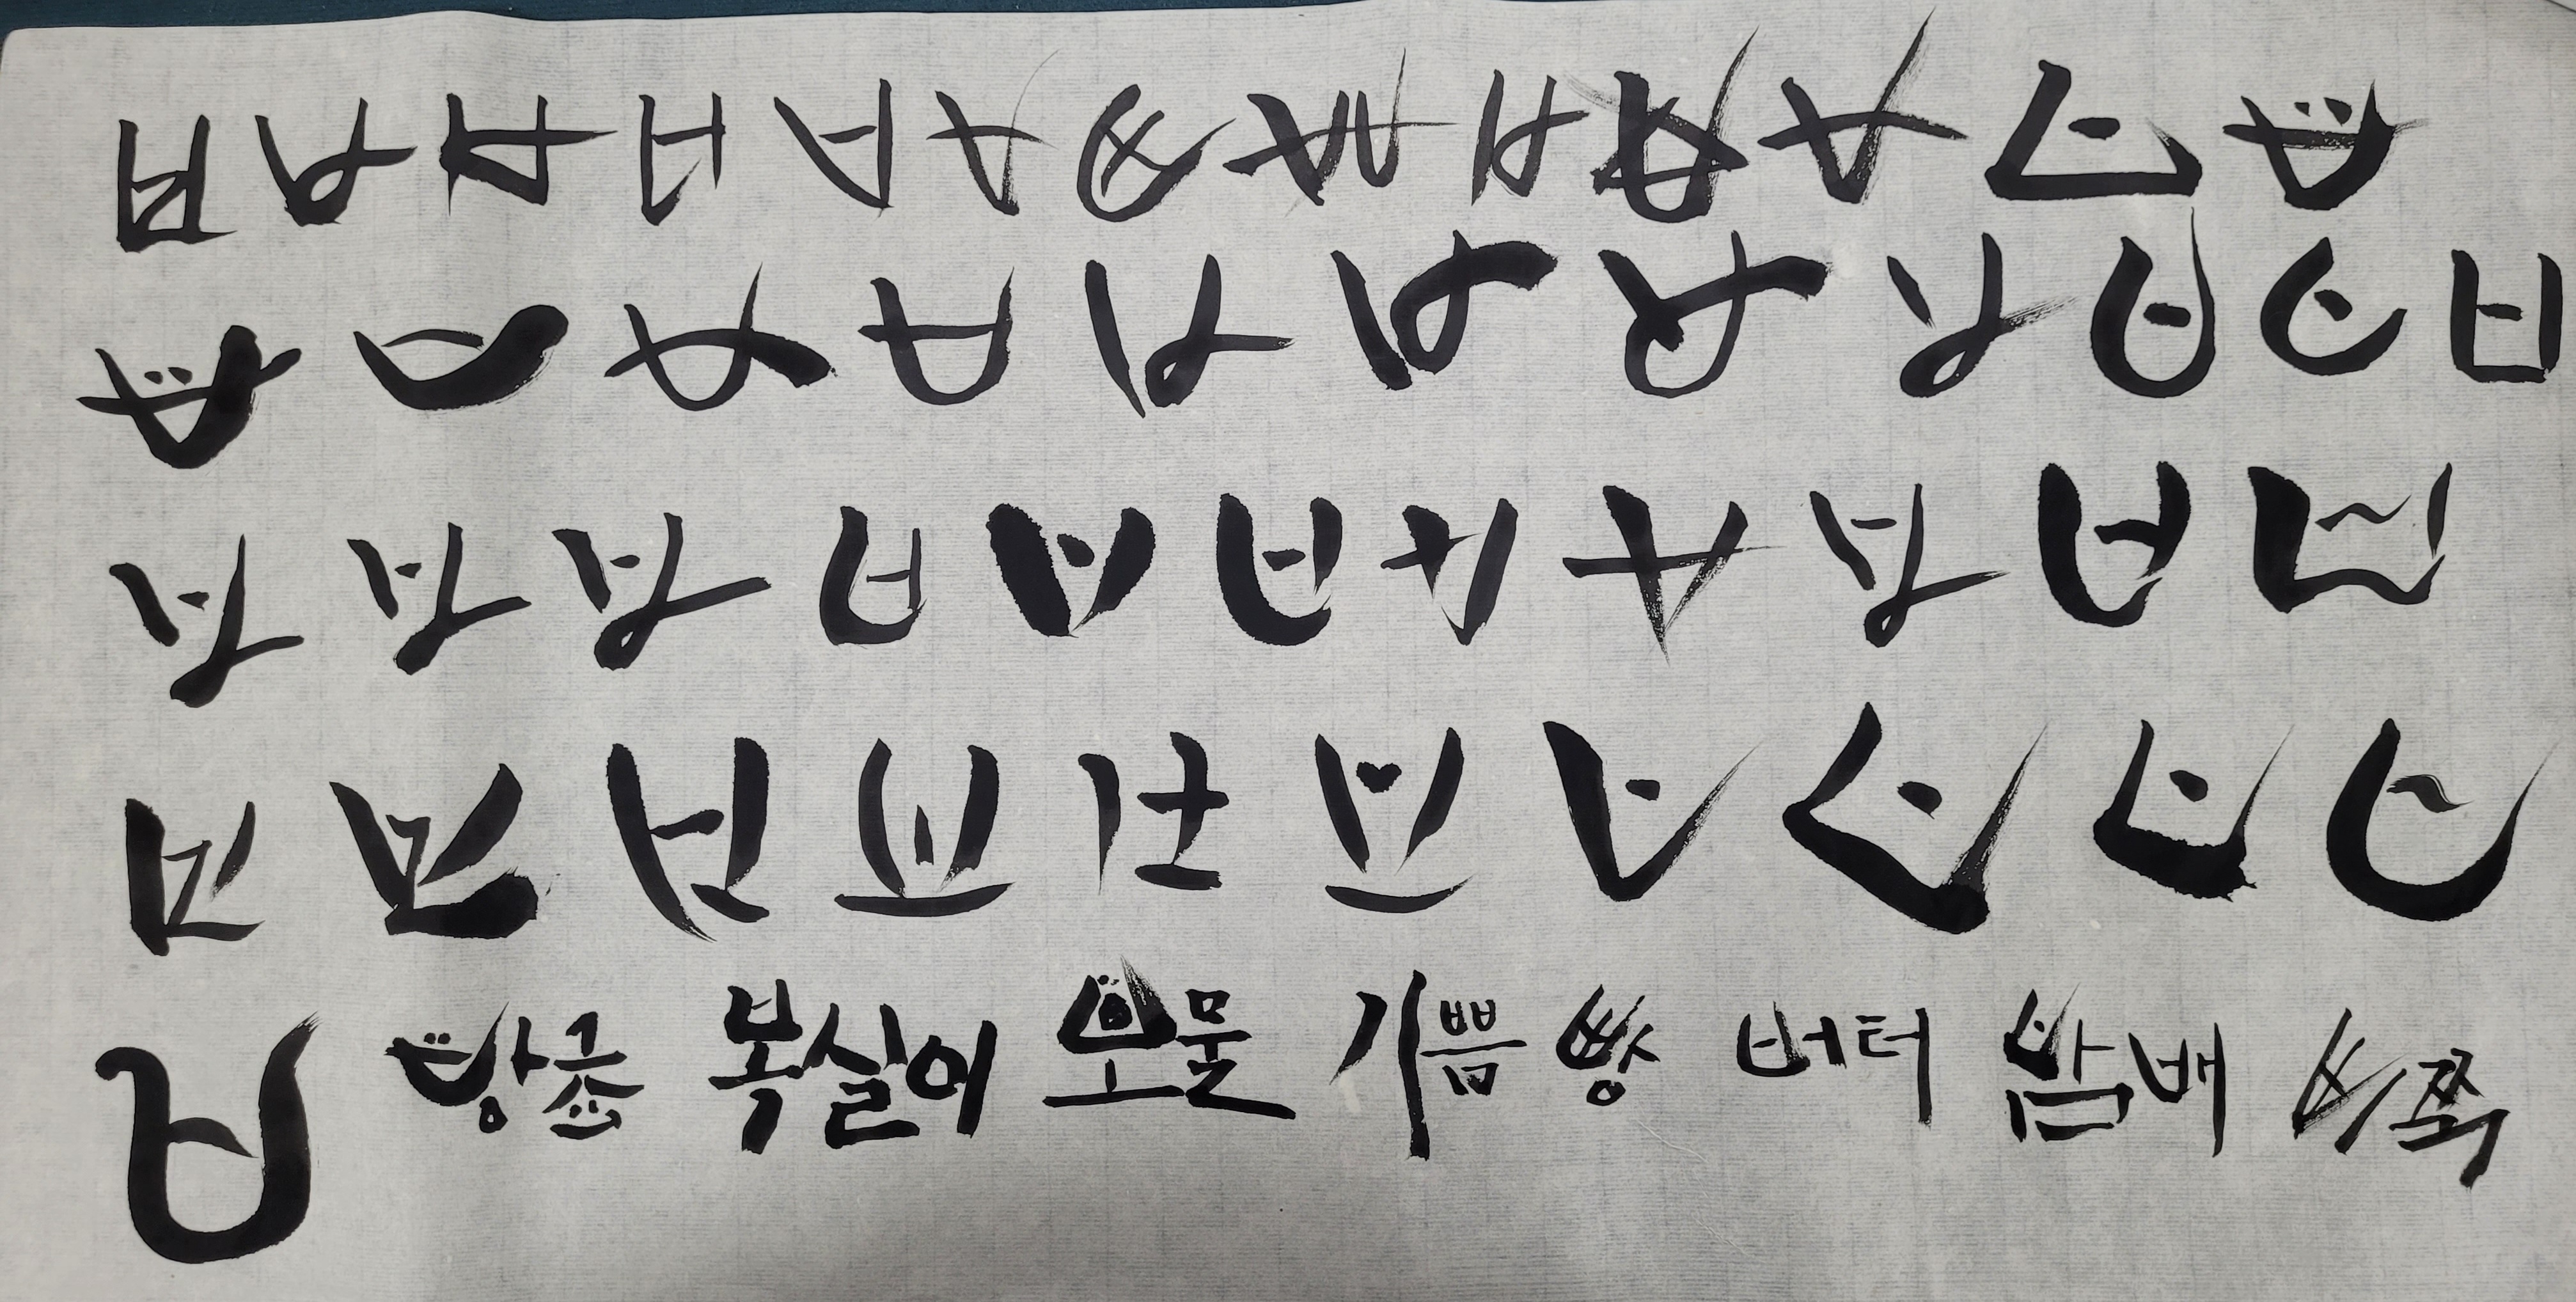 ㅂ ㅂ ㅂ ㅂ ㅂ ㅂ ㅂ ㅂ ㅂ ㅂ ㅂ ㅂ ㅂ
ㅂ ㅂ ㅂ ㅂ ㅂ ㅂ ㅂ ㅂ ㅂ ㅂ ㅂ
ㅂ ㅂ ㅂ ㅂ ㅂ ㅂ ㅂ ㅂ ㅂ ㅂ ㅂ
ㅂ ㅂ ㅂ ㅂ ㅂ ㅂ ㅂ ㅂ ㅂ ㅂ
ㅂ 방긋 복실이 보물 기쁨 빵 버터 밤배